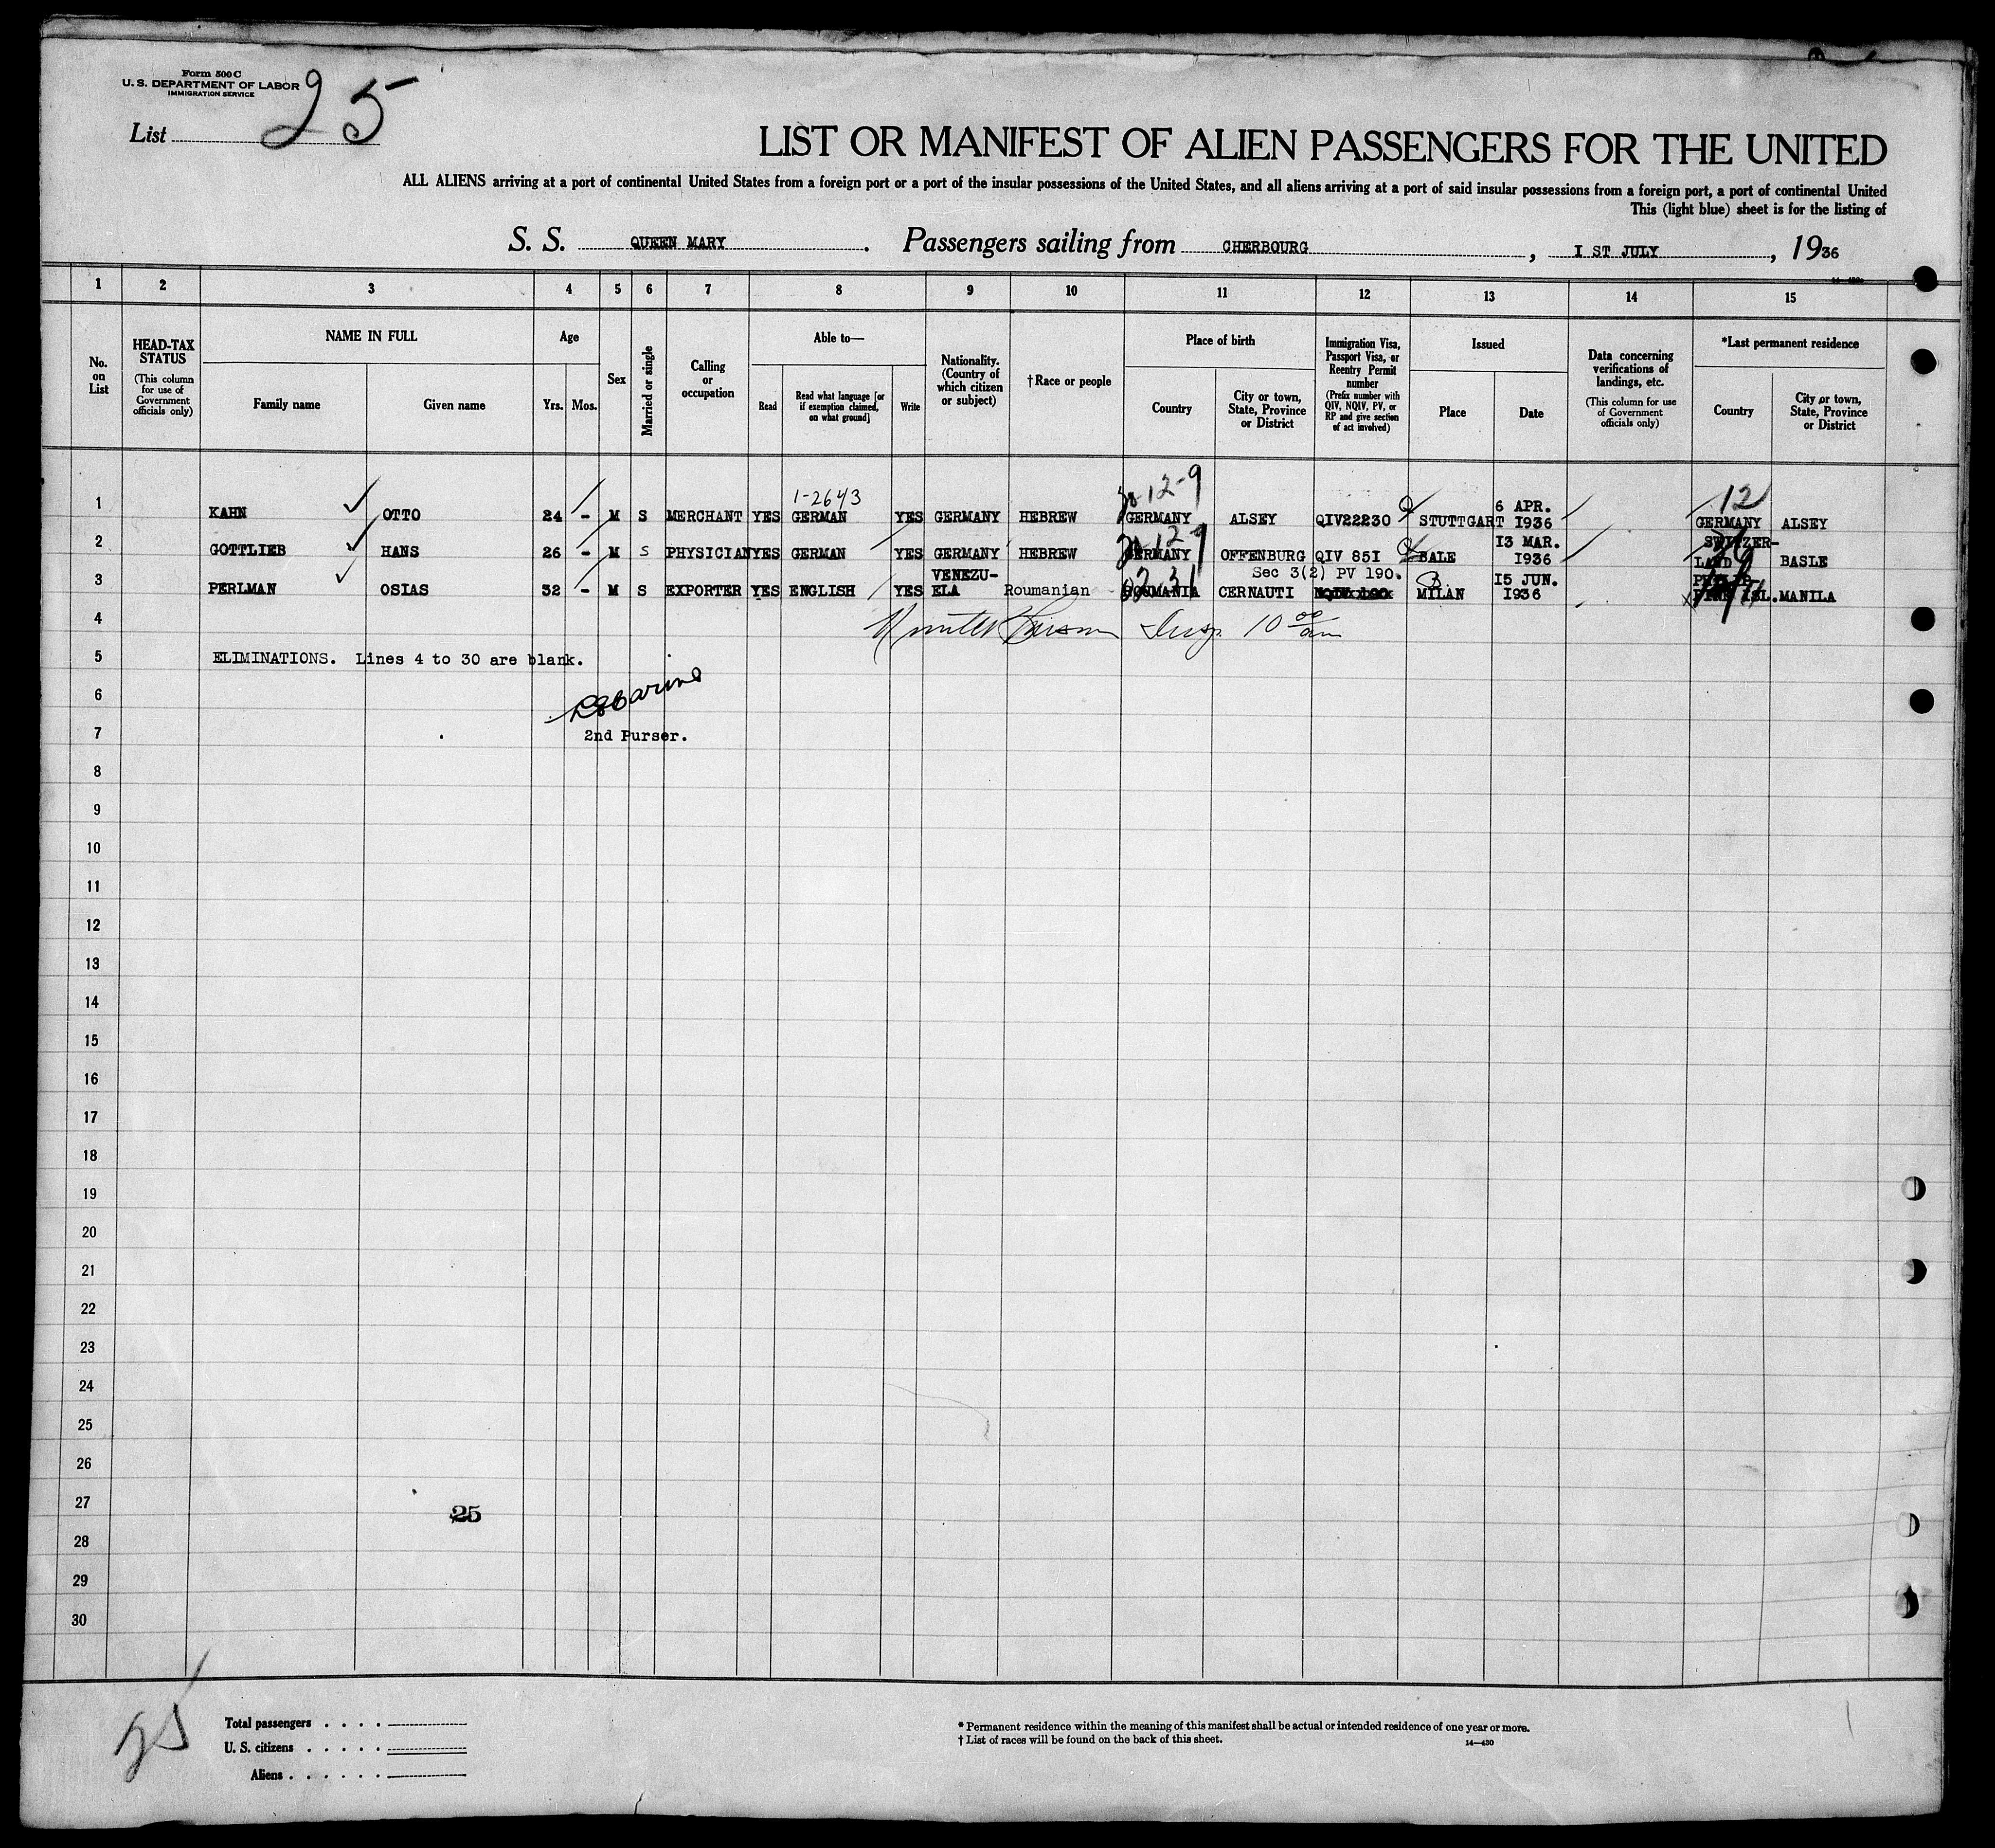 Form 500 C
U. S. DEPARTMENT OF LABOR
IMMIGRATION SERVICE
List 25
LIST OR MANIFEST OF ALIEN PASSENGERS FOR THE UNITED
ALL ALIENS arriving at a port of continental United States from a foreign port or a port of the insular possessions of the United States, and all aliens arriving at a port of said insular possessions from a foreign port, a port of continental United
This (light blue) sheet is for the listing of
S. S. QUEEN MARY. Passengers sailing from CHERBOURG, I ST JULY, 1936
1 2 3 4 5 6 7 8 9 10 11 12 13 14 15
No. on List
HEAD-TAX STATUS (This column for use of Government officials only)
NAME IN FULL
Family name
Given name
Age
Yrs. Mos.
Sex
Married or single
Calling or occupation
Able to—
Read
Read what language [or if exemption claimed, on what ground]
Write
Nationality. (Country of which citizen or subject)
†Race or people
Place of birth
Country
City or town, State, Province or District
Immigration Visa, Passport Visa, or Reentry Permit number (Prefix number with QIV, NQIV, PV, or RP and give section of act involved)
Issued
Place
Date
Data concerning verifications of landings, etc. (This column for use of Government officials only)
*Last permanent residence
Country
City or town, State, Province or District
1-2643 12-9 12
1 KAHN OTTO 24 - M S MERCHANT YES GERMAN YES GERMANY HEBREW GERMANY ALSEY QIV22230 STUTTGART 6 APR. I936 GERMANY ALSEY
12-9
2 GOTTLIEB HANS 26 - M S PHYSICIAN YES GERMAN YES GERMANY HEBREW GERMANY OFFENBURG QIV 85I BALE I3 MAR. I936 SWITZER-LAND BASLE
3 PERLMAN OSIAS 32 - M S EXPORTER YES ENGLISH YES VENEZU-ELA Roumanian ROUMANIA CERNAUTI Sec 3(2) PV 190. MILAN I5 JUN. I936 ISL. MANILA
4 Insp. 10 00 am
5 ELIMINATIONS. Lines 4 to 30 are blank.
6
7 2nd Purser.
8
9
10
11
12
13
14
15
16
17
18
19
20
21
22
23
24
25
26
27 25
28
29
30
25
Total passengers . . . .
U. S. citizens . . . . .
Aliens . . . . . .
* Permanent residence within the meaning of this manifest shall be actual or intended residence of one year or more.
† List of races will be found on the back of this sheet.
14—430